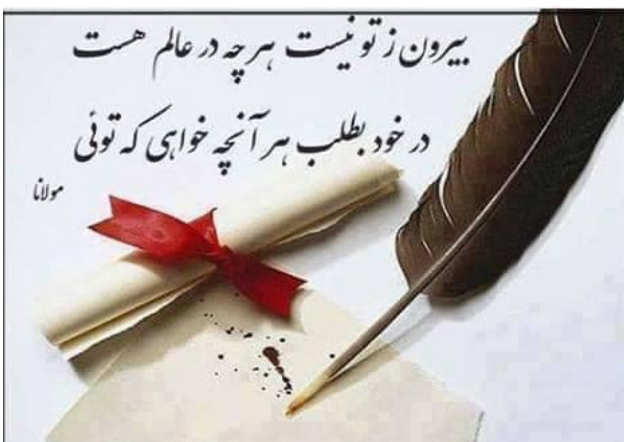 بیرون ز تو نیست هر چه در عالم هست
در خود بطلب هر آنچه خواهی که توئی
مولانا